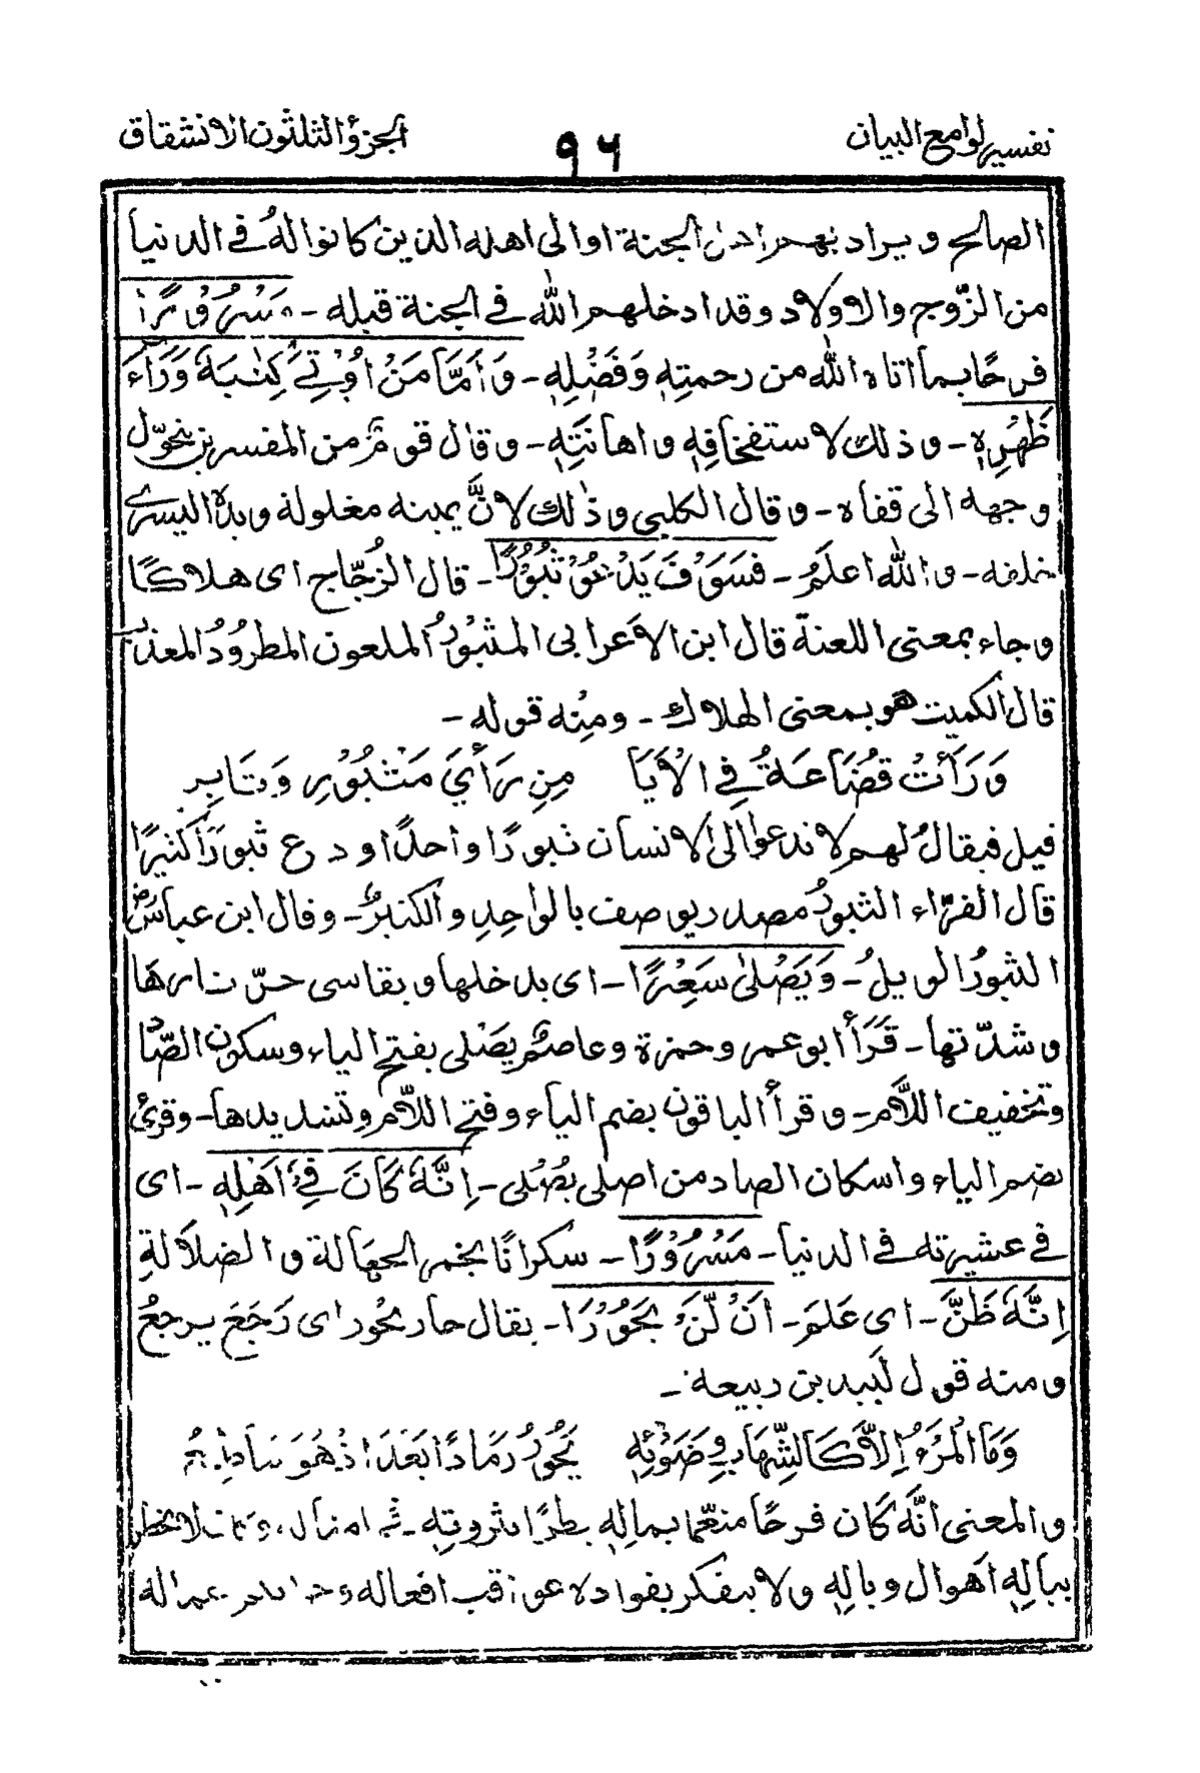 تفسير لوامع البيان
٩٦
الجزؤ الثلثون الانشقاق
الصالح ويراد بهم الجنة او الى اهله الذين كانوا لهُ في الدنيا
من الزّوج والاولاد وقد ادخلهم الله في الجنة قبله - مَسْرُوْرًا
فرحًا بما اتاه الله من رحمتِهٖ وَفَضْلِهٖ - وَاَمَّا مَنْ اُوْتِيَ كِتٰبَهٗ وَرَآءَ
ظَهْرِهٖ - وذلك لاستخفافِهٖ واهانتِهٖ - وقال قومٌ من المفسرين بتحوّل
وجهه الى قفاه - وقال الكلبي وذٰلك لانَّ يمينه مغلولة ويده اليسرى
خلفه - والله اعلمُ - فَسَوْفَ يَدْعُوْ ثُبُوْرًا - قال الزُّجّاج اى هلاكًا
وجاء بمعنى اللعنة قال ابن الاَعرابى المثبُوْرُ الملعون المطرُودُ المعذب
قال الكميت هو بمعنى الهلاك - ومِنْه قوله -
وَرَأَتْ قُضَاعَةُ فِي الْاَيَا مِنِ رَأْيَ مَثْبُوْرٍ وَثَابِرِ
قيل فيقالُ لهم لا تدعوا الى الانسان ثبورًا واحدًا و درع ثبورًا كثيرًا
قال الفرّاء الثبورُ مصدر يوصف بالواحِدِ والكثيرُ - وقال ابن عباسؓ
الثبورُ الويلُ - وَيَصْلٰى سَعِيْرًا - اى يدخلها ويقاسى حرّ نارهَا
وشدّتها - قَرَأَ ابو عمر وحمزة وعاصمٌ يَصْلٰى بفتح الياء وسكون الصّاد
وتخفيف اللاّم - وقرأ الباقون بضم الياء وفتح اللاّم وتشديدها - وقرئ
بضم الياء واسكان الصاد من اصلى يُصْلى - اِنَّهٗ كَانَ فِيْٓ اَهْلِهٖ - اى
في عشيرته في الدنيا - مَسْرُوْرًا - سكرانًا بخمر الجهالة والضلاَلةِ
اِنَّهٗ ظَنَّ - اى عَلمَ - اَنْ لَّنْ يَّحُوْرَا - يقال حار يحُور اى رَجَعَ يرجعُ
ومنه قول لَبيد بن ربيعة -
وَمَا الْمَرْءُ اِلاَّ كَالشِّهَابِ وَضَوْئِهٖ يَحُوْرُ رمَادًا بَعْدَ اِذْ هُوَ سَاطِعُ
والمعنى انَّهٗ كَان فرحًا منعّما بمالِهٖ بطرًا بثروتِهٖ - لا يخطر
ببالِهٖ اَهْوال وبالِهٖ ولا يتفكر بفواده عواقب افعاله اعماله